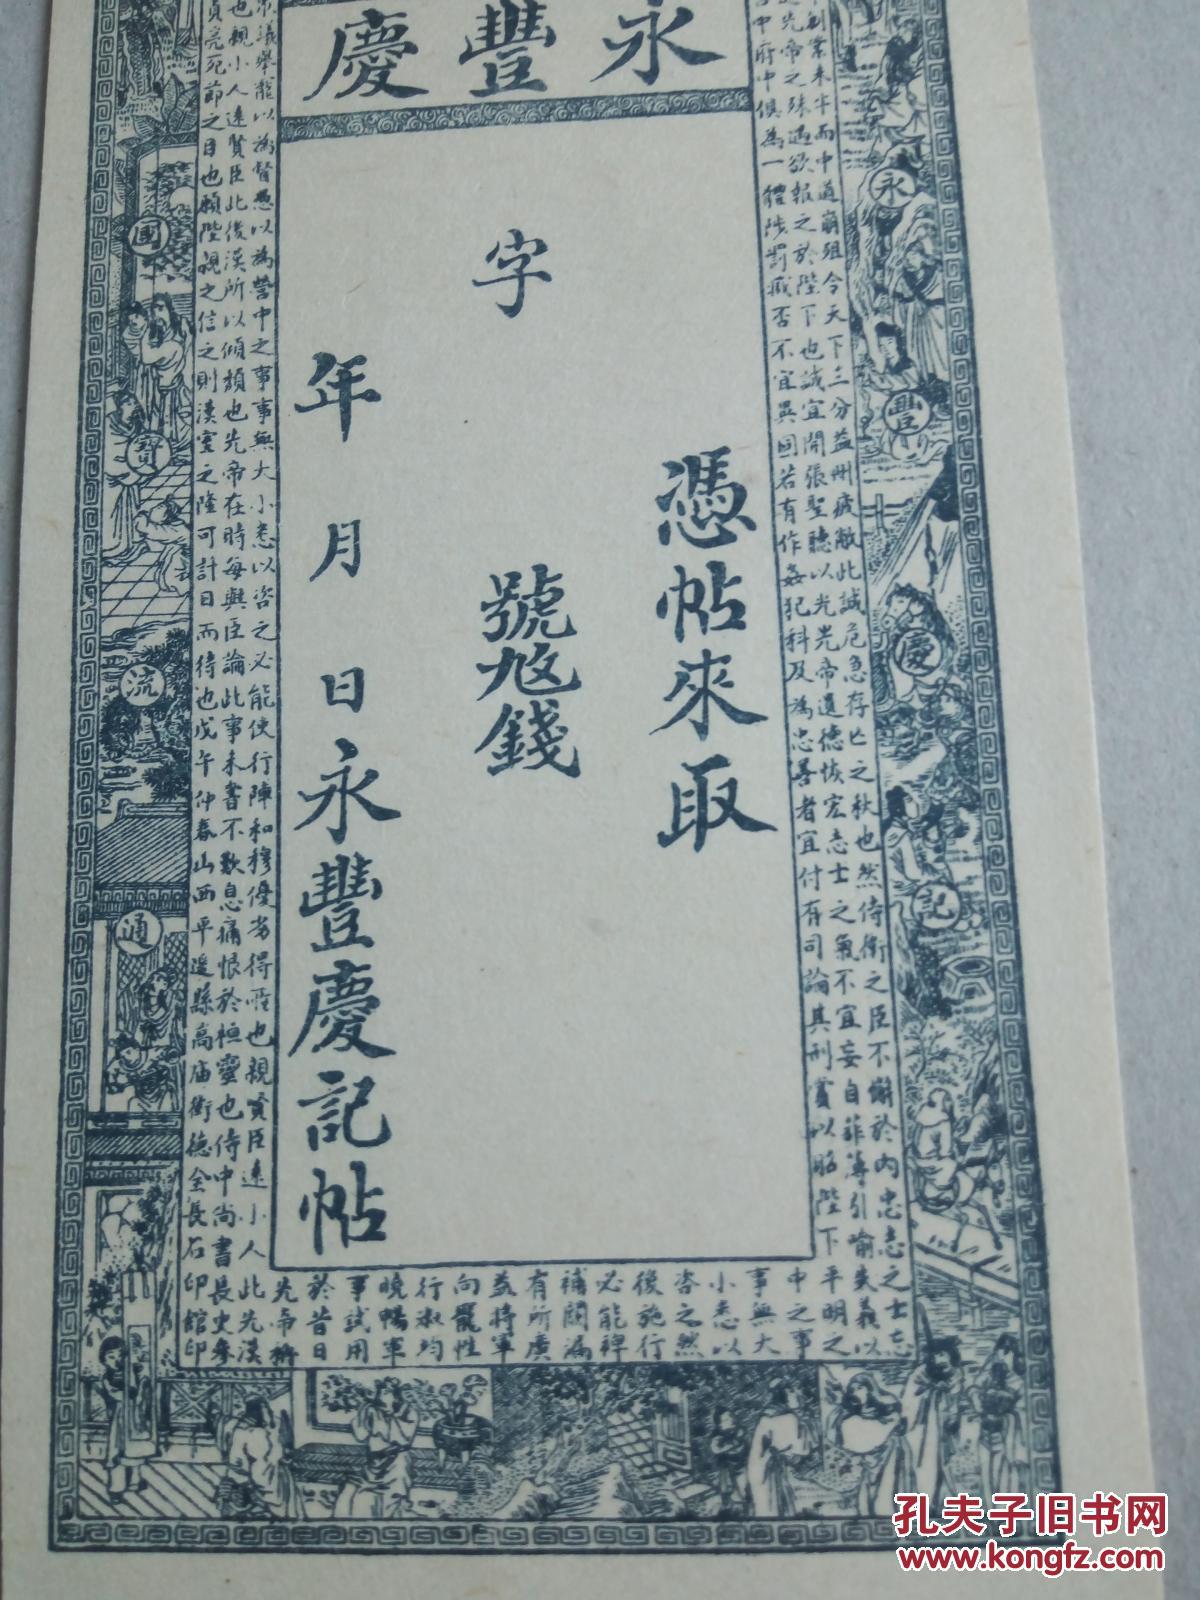 永豐慶
憑帖來取
字 號 錢
年 月 日永豐慶記帖
永豐慶記
國寶流通
業未半而中道崩殂今天下三分益州疲敝此誠危急存亡之秋也然侍衛之臣不懈於內忠志之士
先帝之殊遇欲報之於陛下也誠宜開張聖聽以光先帝遺德恢宏志士之氣不宜妄自菲薄引喻失義以
中府中俱為一體陟罰臧否不宜異同若有作姦犯科及為忠善者宜付有司論其刑賞以昭陛下平明之
中之事
事無大
小悉以
咨之然
後施行
必能裨
補闕漏
有所廣
益將軍
向寵性
行淑均
曉暢軍
事試用
於昔日
先帝稱
眾議舉寵以為督愚以為營中之事事無大小悉以咨之必能使行陣和穆優劣得所也親賢臣遠小人此先漢
也親小人遠賢臣此後漢所以傾頹也先帝在時每與臣論此事未嘗不歎息痛恨於桓靈也侍中尚書長史參
貞亮死節之臣也願陛親之信之則漢室之隆可計日而待也戊午仲春山西平遙縣高庙街德全長石印館印
孔夫子旧书网
www.kongfz.com